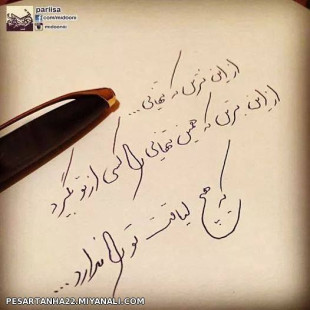 pariisa
.com/midoors
midoorss
از این نترس که تنهایی...
از این بترس که همین تنهایی را کسی از تو بگیرد
که هیچ لیاقت تو را ندارد...
PESARTANHA22.MIYANALI.COM